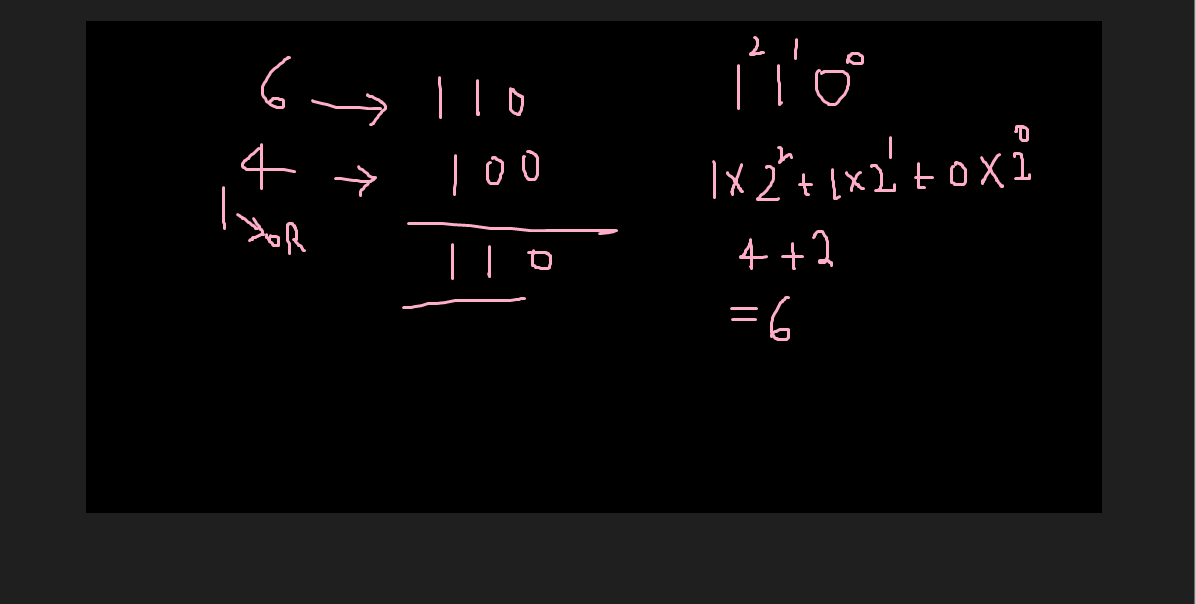 6 → 110
4 → 100
| → OR
110
1² 1¹ 0⁰
1×2² + 1×2¹ + 0×2⁰
4+2
=6